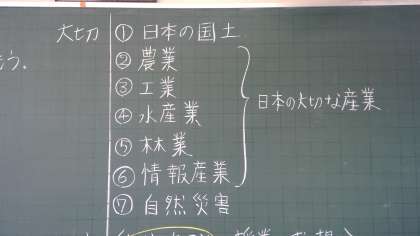 大切 ① 日本の国土
② 農業
もう。
③ 工業
日本の大切な産業
④ 水産業
⑤ 林業
⑥ 情報産業
⑦ 自然災害